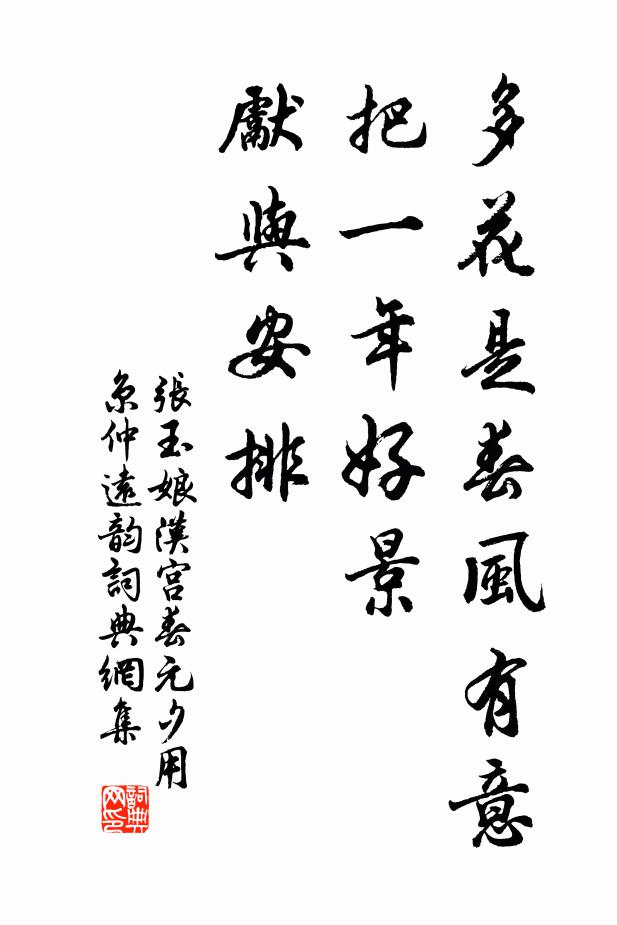 多花是春風有意
把一年好景
獻與安排
張玉娘漢宮春元夕用
京仲遠韵詞典網集
詞典
网印